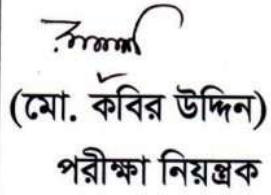 (মো. কবির উদ্দিন)
পরীক্ষা নিয়ন্ত্রক